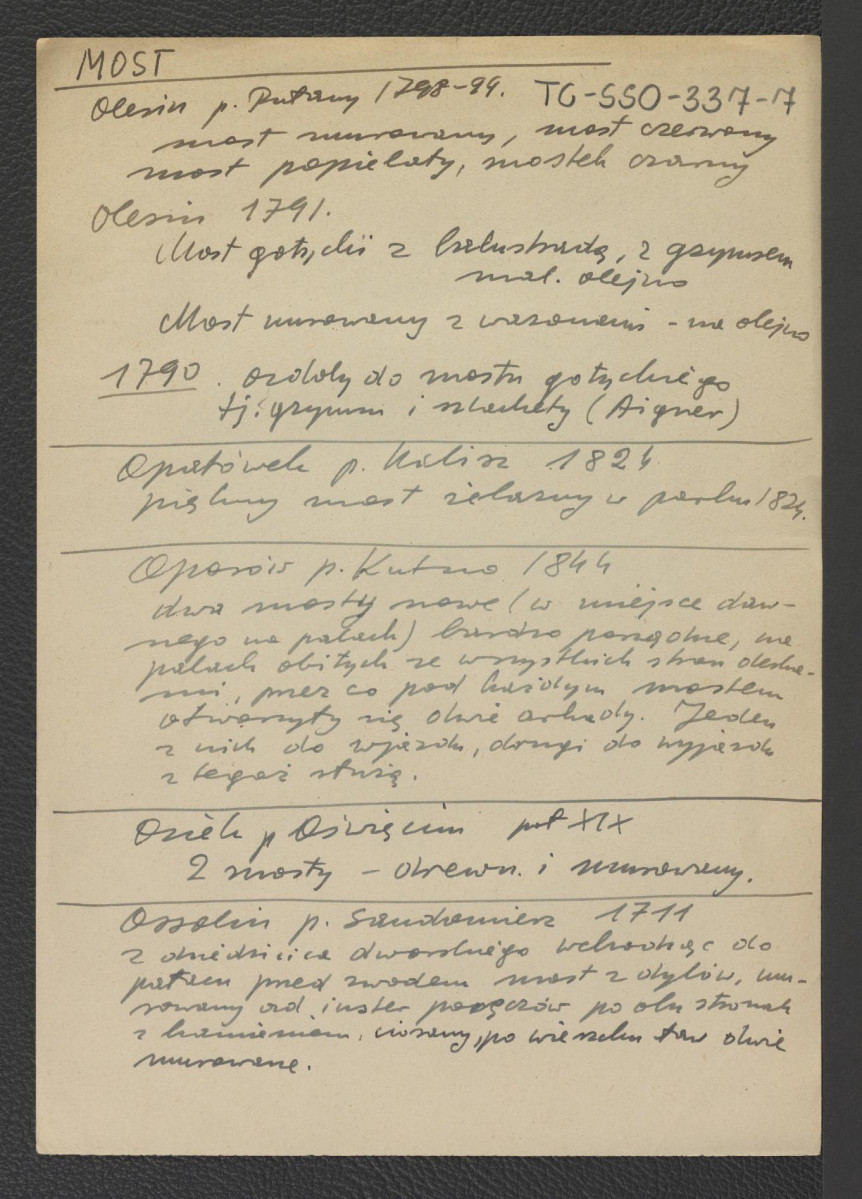 MOST
Olesin p. Puławy 1798-99. TG-SSO-337-7
most murowany, most czerwony
most popielaty, mostek czarny
Olesin 1791.
Most gotycki z balustradą, z gzymsem
mal. olejno
Most murowany z wazonami - na olejno
1790. ozdoby do mostu gotyckiego
tj. gzymsu i sztachety (Aigner)
Opatówek p. Kalisz 1824
piękny most żelazny w parku 1824.
Oporów p. Kutno 1844
dwa mosty nowe (w miejsce daw-
nego na palach) bardzo porządne, na
palach obitych ze wszystkich stron deska-
mi, przez co pod każdym mostem
otworzyły się dwie arkady. Jeden
z nich do wjazdu, drugi do wyjazdu
z tegoż służą.
Osiek p Oświęcim poł XIX
2 mosty - drewn. i murowany.
Ossolin p. Sandomierz 1711
z dziedzińca dworskiego wchodząc do
pałacu przed zwodem most z dylów, mu-
rowany ad instar poręczów po obu stronach
z kamieniem ciosany, po wierzchu ław dwie
murowane.